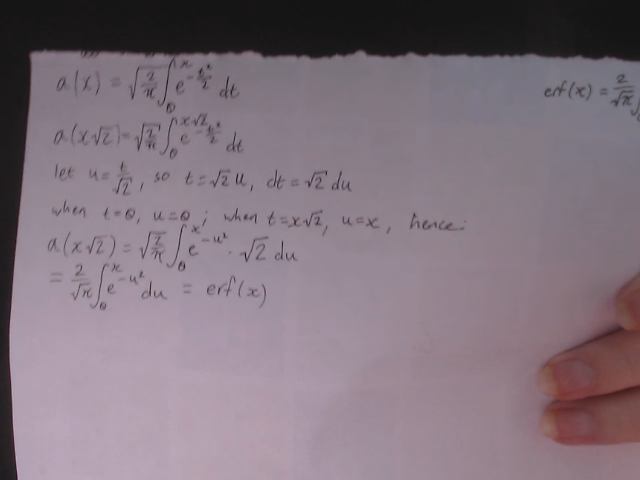 a(x) = √(2/π) ∫₀ˣ e^(-t²/2) dt
erf(x) = 2/√π ∫₀
a(x√2) = √(2/π) ∫₀^(x√2) e^(-t²/2) dt
let u = t/√2, so t = √2 u, dt = √2 du
when t=0, u=0; when t=x√2, u=x, hence:
a(x√2) = √(2/π) ∫₀ˣ e^(-u²) · √2 du
= 2/√π ∫₀ˣ e^(-u²) du = erf(x)